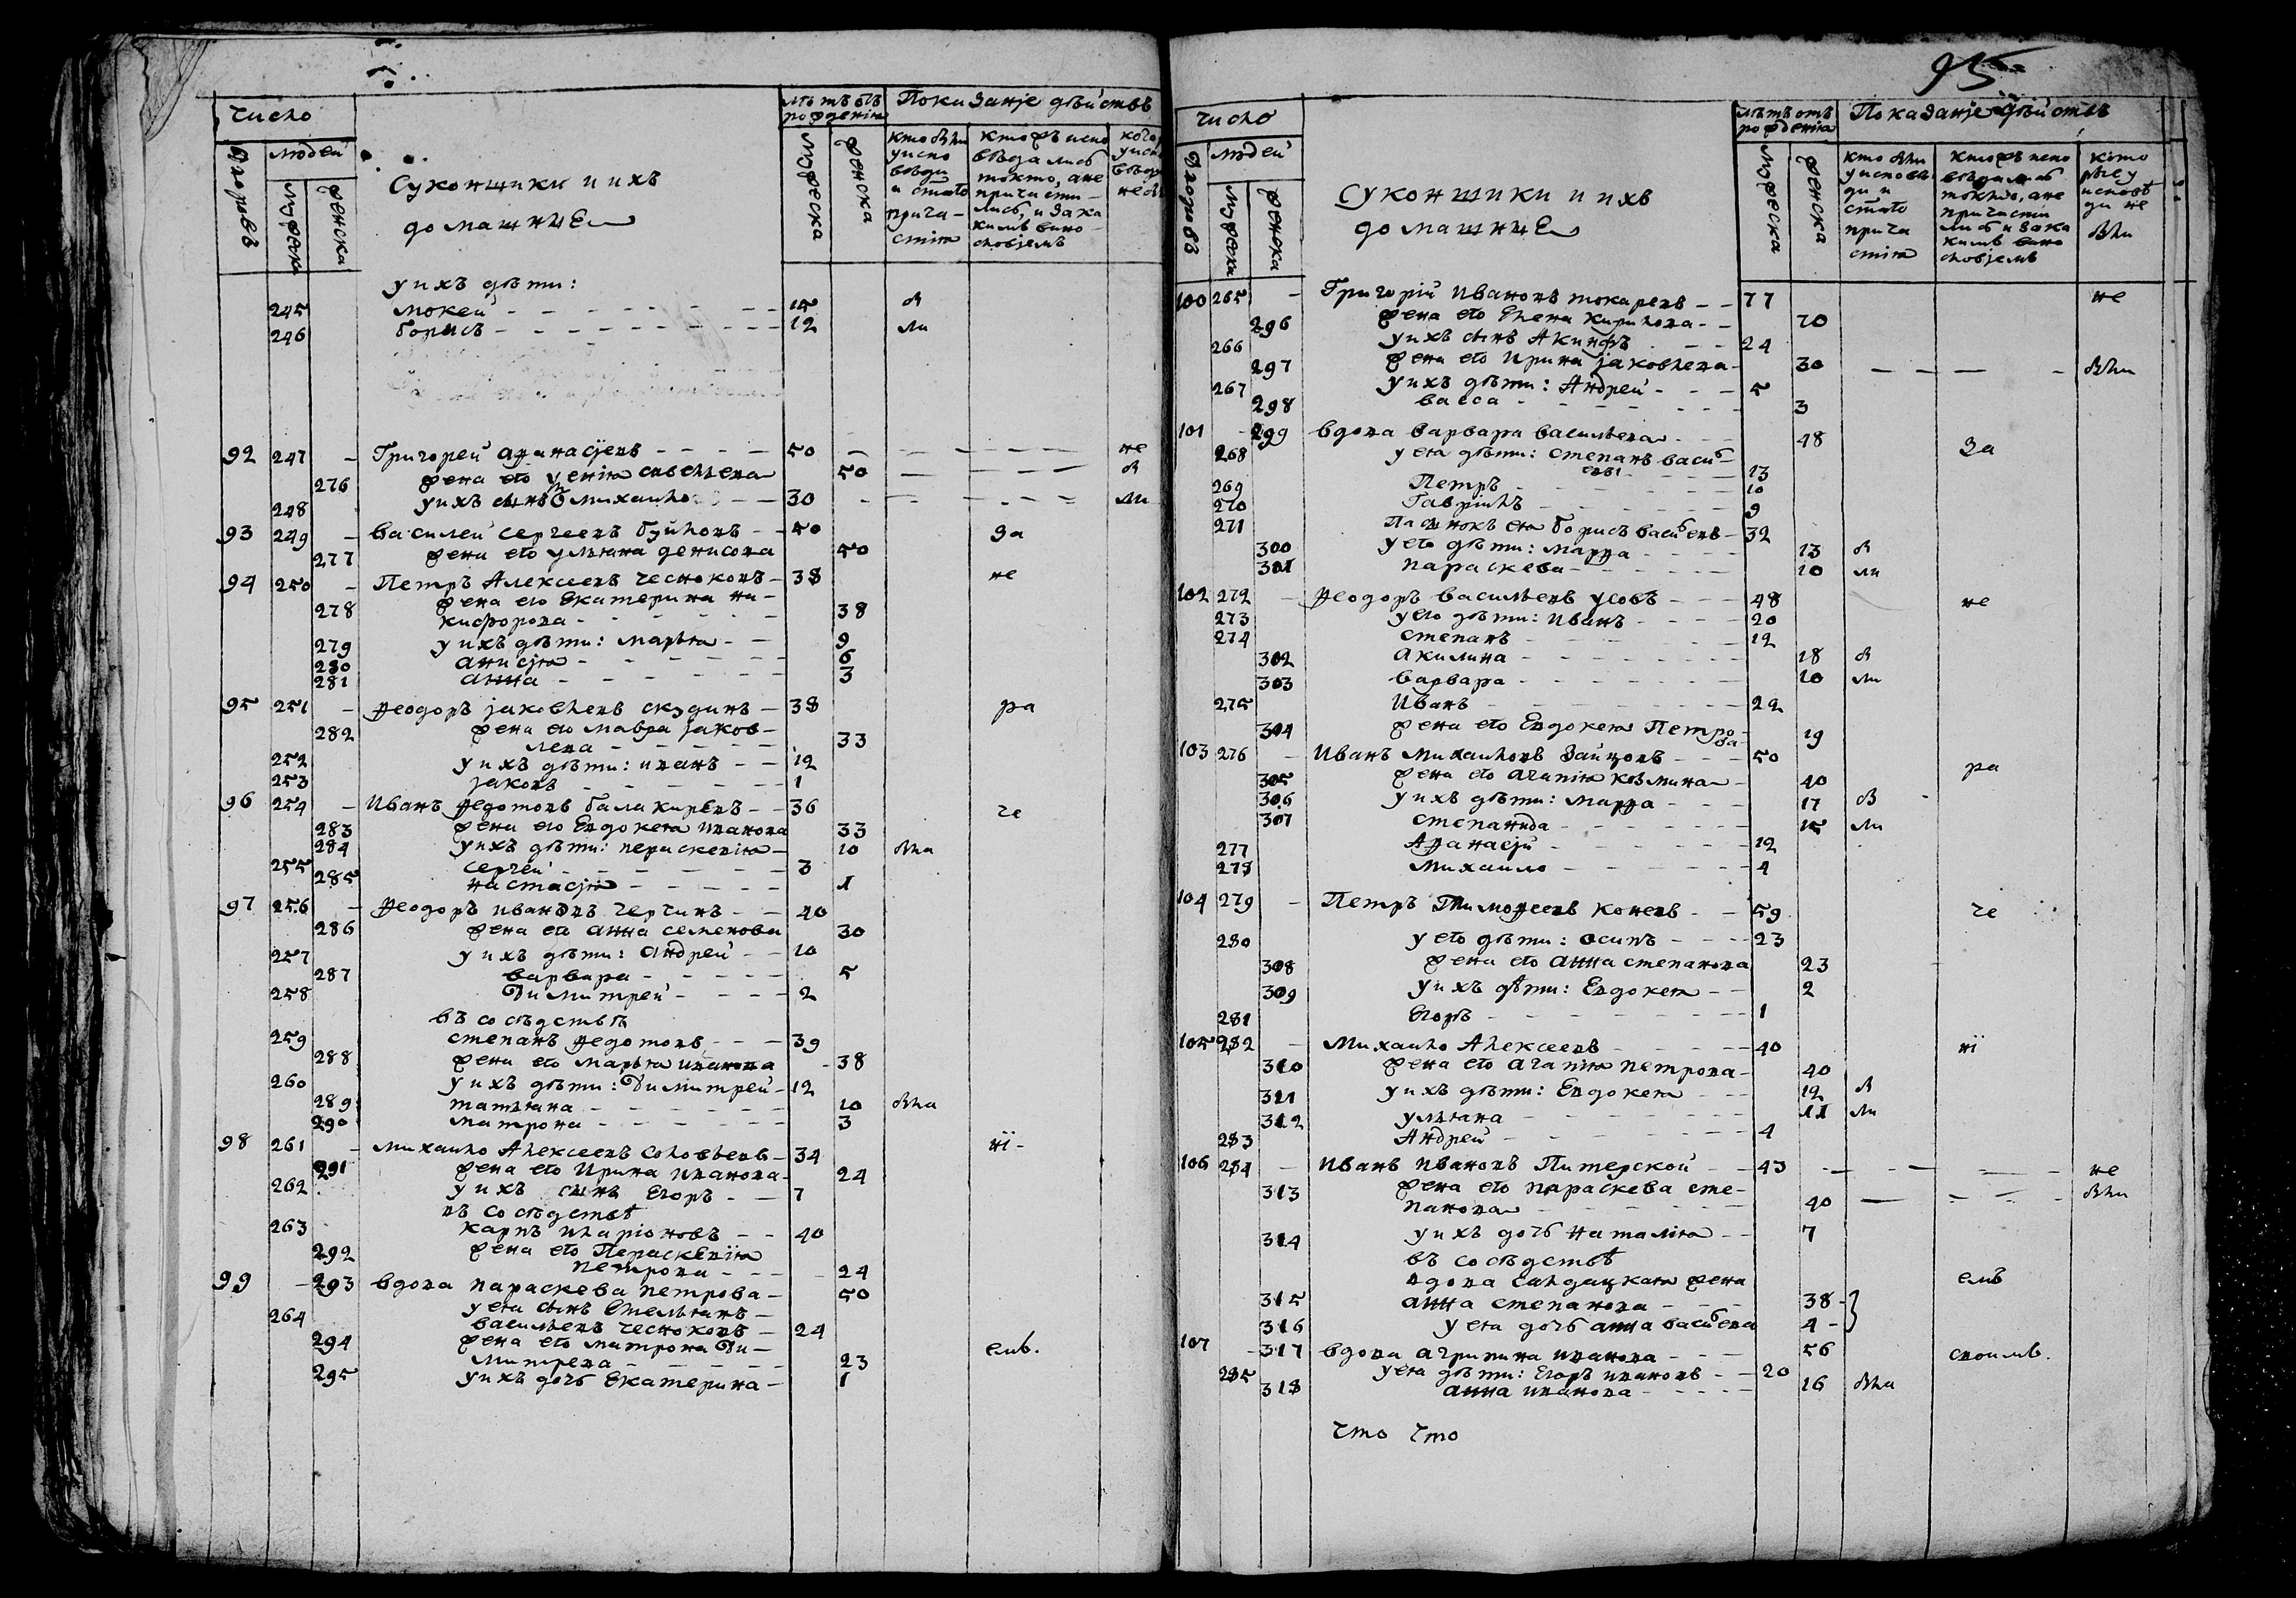 Число
людей
дворовъ
мужеска
женска
Суконщики и ихъ
домашнцЕ
лѣтъ отъ
рожденїя
мужеска
женска
Показанје дѣйствъ
кто были
у испо
вѣди
и стаго
прича-
стїя
кто жъ испо
вѣдались
токмо, а не
причасти-
лись, и зака
кимъ вино
словјемъ
у ихъ дѣти:
245 мокей 15 б
246 борисъ 12 ли
92 247 Григорей афанасјевъ 50 не
276 жена его ѵенїя савельева 50 б
248 у ихъ сынъ михаило 30 ли
93 249 василей сергеевъ буйловъ 50 за
277 жена его ульяна денисова 50
94 250 Петръ Алексеевъ чесноковъ 38 не
278 жена его Екатерина ни-
кифорова 38
279 у ихъ дѣти: марья 9
280 анисја 6
281 анна 3
95 251 Ѳеодоръ јаковлевъ скудинъ 38 ра
282 жена его мавра јаков-
лева 33
252 у ихъ дѣти: иванъ 12
253 јаковъ 1
96 254 Иванъ Ѳедотовъ балакиревъ 36 че
283 жена его Евдокея иванова 33
284 у ихъ дѣти: перискевїя 10 были
255 сергей 3
285 настасја 1
97 256 Ѳеодоръ ивановъ чергинъ 40
286 жена его анна семенова 30
257 у ихъ дѣти: андрей 10
287 варвара 5
258 Димитрей 2
въ сосѣдствѣ
259 степанъ Ѳедотовъ 39
288 жена его марья иванова 38
260 у ихъ дѣти: Димитрей 12
289 татьяна 10 были
290 матрона 3
98 261 михаило Алексеевъ соловьевъ 34 нї-
291 жена его Ирина иванова 24
262 у ихъ сынъ Егоръ 7
въ сосѣдствѣ
263 карпъ иларїоновъ 40
292 жена его Пераскевїя
петрова 24
99 293 вдова параскева петрова 50
264 у ея сынъ Емельянъ
васильевъ чесноковъ 24
294 жена его матрона Ди-
митрева 23 емъ.
295 у ихъ дочь Екатерина 1
95
Число
людей
дворовъ
мужеска
женска
Суконщики и ихъ
домашнцЕ
лѣтъ отъ
рожденїя
мужеска
женска
Показанје дѣйствъ
кто были
у исповѣ
ди и
стаго
прича
стїя
кто жъ испо
вѣдались
токмо, а не
причасти
лись и зака
кимъ вино
словјемъ
кто
же у
исповѣ
ди не
были
100 265 Григорїй Ивановъ токаревъ 77 не
296 жена его Елена Кирилова 70
266 у ихъ сынъ Акинфъ 24
297 жена его Ирина јаковлева 30 были
267 у ихъ дѣти: Андрей 5
298 васса 3
101 299 вдова варвара васильева 48 за
268 у ея дѣти: степанъ васи
евъ 13
269 Петръ 10
270 Гаврїилъ 9
271 Пасынокъ ея борисъ васильевъ 32
300 у его дѣти: марѳа 13 б
301 параскева 10 ли
102 272 Ѳеодоръ васильевъ усовъ 48 не
273 у его дѣти: иванъ 20
274 степанъ 12
302 акилина 18 б
303 варвара 10 ли
275 Иванъ 22
304 жена его Евдокея Петро
ва 19
103 276 Иванъ михаиловъ зайцовъ 50 ра
305 жена его агапїя козмина 40
306 у ихъ дѣти: марѳа 17 б
307 степанида 15 ли
277 Аѳанасјй 12
278 михаило 4
104 279 Петръ Тимоѳеевъ коневъ 59 че
280 у его дѣти: осипъ 23
308 жена его анна степанова 23
309 у ихъ дѣти: Евдокея 2
281 Егоръ 1
105 282 михаило Алексеевъ 40 нї
310 жена его агапїя петрова 40
311 у ихъ дѣти: Евдокея 12 б
312 ульяна 11 ли
283 Андрей 4
106 284 Иванъ Ивановъ Питерской 43 не
313 жена его параскева сте-
панова 40 были
314 у ихъ дочь наталїя 7
въ сосѣдствѣ
вдова салдацкая жена
315 анна степанова 38 емъ
316 у ея дочь анна васильева 4
107 317 вдова агрипина иванова 56 словимъ.
285 у ея дѣти: Егоръ ивановъ 20
318 анна иванова 16 были
что что